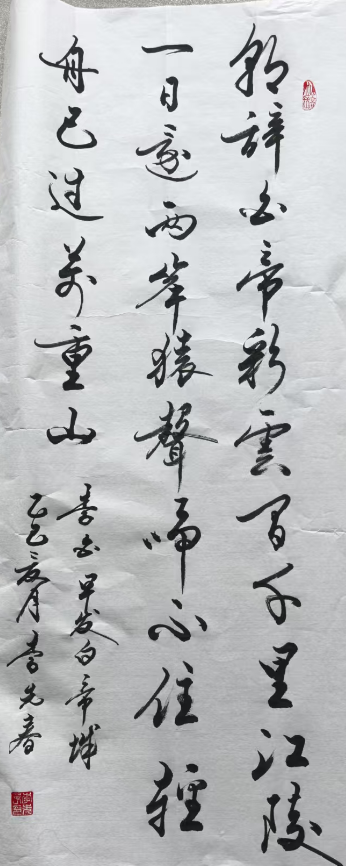 朝辞白帝彩雲間千里江陵
一日還两岸猿聲啼不住輕
舟已過萬重山
李白早发白帝城
乙巳月李先春